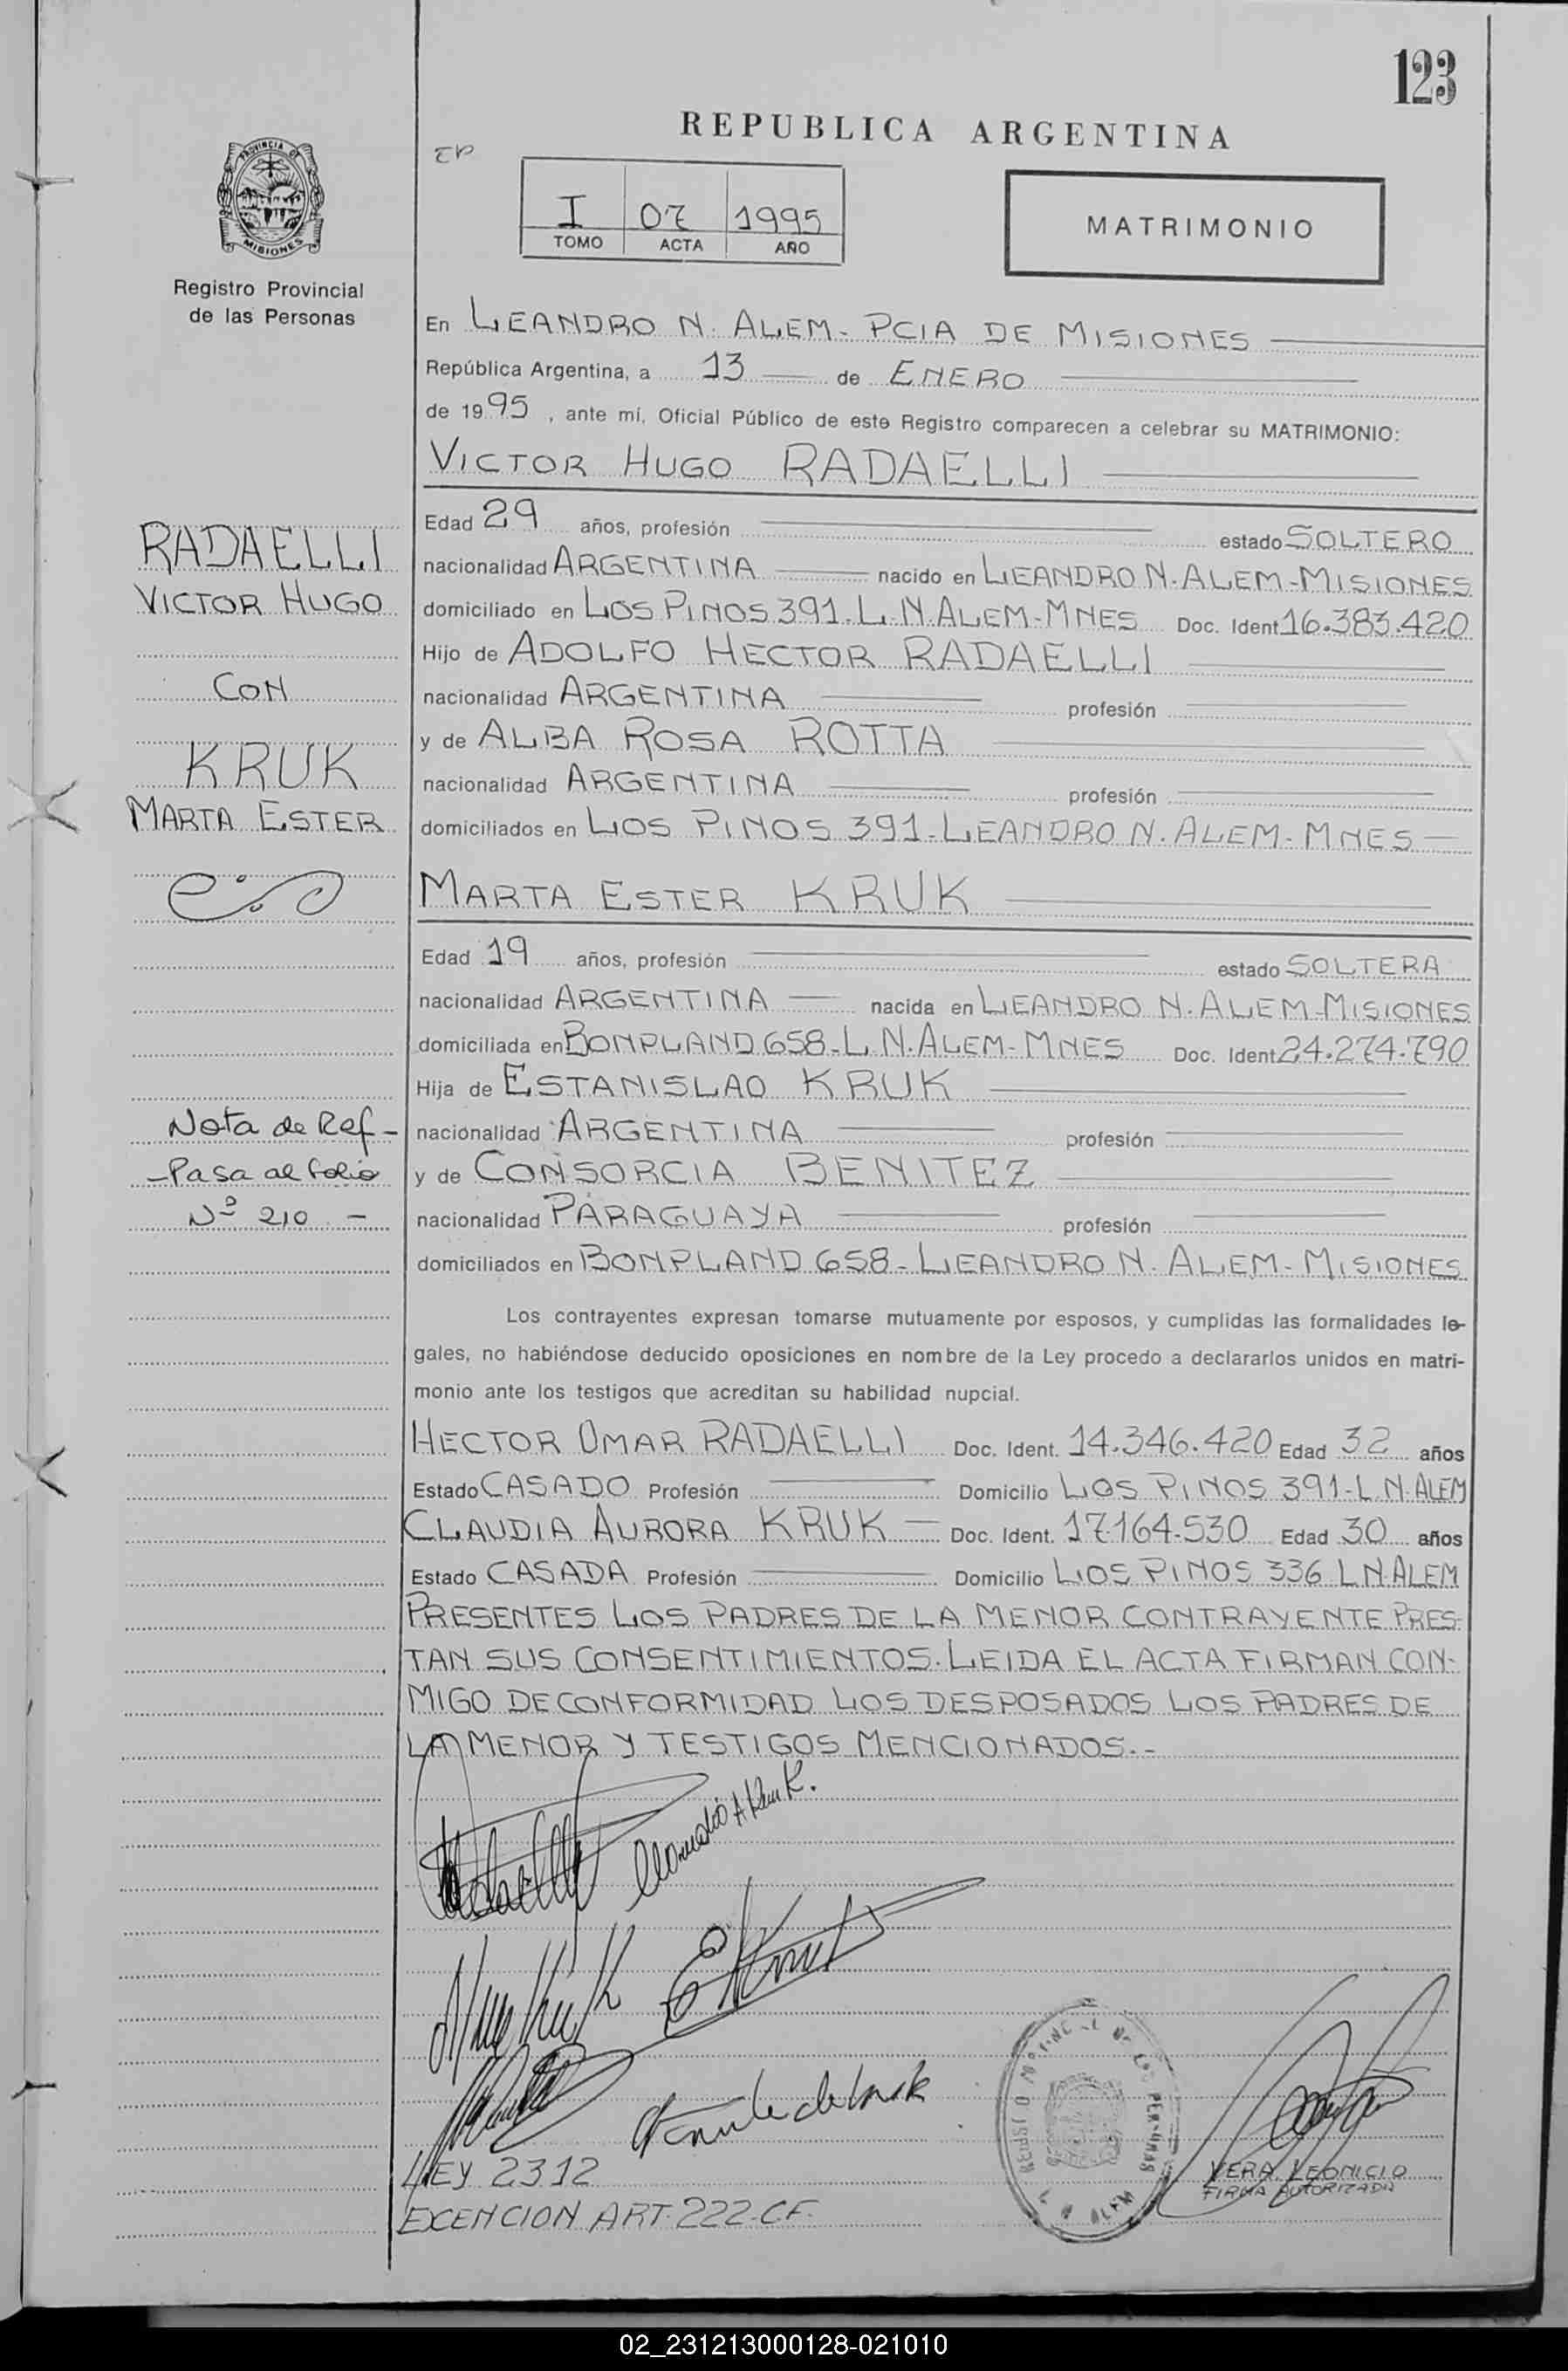 123
REPUBLICA ARGENTINA
PROVINCIA DE
MISIONES
Registro Provincial
de las Personas
I 07 1995
TOMO ACTA AÑO
MATRIMONIO
En LEANDRO N. ALEM - PCIA DE MISIONES
República Argentina, a 13 de ENERO
de 1995, ante mí, Oficial Público de este Registro comparecen a celebrar su MATRIMONIO:
VICTOR HUGO RADAELLI
Edad 29 años, profesión estado SOLTERO
RADAELLI
nacionalidad ARGENTINA nacido en LEANDRO N. ALEM-MISIONES
VICTOR HUGO
domiciliado en LOS PINOS 391-L.N.ALEM-MNES Doc. Ident. 16.383.420
Hijo de ADOLFO HECTOR RADAELLI
CON
nacionalidad ARGENTINA profesión
y de ALBA ROSA ROTTA
KRUK
nacionalidad ARGENTINA profesión
MARTA ESTER
domiciliados en LOS PINOS 391-LEANDRO N. ALEM-MNES
MARTA ESTER KRUK
Edad 19 años, profesión estado SOLTERA
nacionalidad ARGENTINA nacida en LEANDRO N. ALEM-MISIONES
domiciliada en BONPLAND 658-L.N.ALEM-MNES Doc. Ident. 24.274.790
Hija de ESTANISLAO KRUK
Nota de Ref-
nacionalidad ARGENTINA profesión
-Pasa al folio
y de CONSORCIA BENITEZ
Nº 210 -
nacionalidad PARAGUAYA profesión
domiciliados en BONPLAND 658-LEANDRO N. ALEM-MISIONES
Los contrayentes expresan tomarse mutuamente por esposos, y cumplidas las formalidades le-
gales, no habiéndose deducido oposiciones en nombre de la Ley procedo a declararlos unidos en matri-
monio ante los testigos que acreditan su habilidad nupcial.
HECTOR OMAR RADAELLI Doc. Ident. 14.346.420 Edad 32 años
Estado CASADO Profesión Domicilio LOS PINOS 391-L.N.ALEM
CLAUDIA AURORA KRUK Doc. Ident. 17.164.530 Edad 30 años
Estado CASADA Profesión Domicilio LOS PINOS 336 L.N.ALEM
PRESENTES LOS PADRES DE LA MENOR CONTRAYENTE PRES-
TAN SUS CONSENTIMIENTOS. LEIDA EL ACTA FIRMAN CON-
MIGO DE CONFORMIDAD LOS DESPOSADOS LOS PADRES DE
LA MENOR Y TESTIGOS MENCIONADOS.-
LEY 2312
EXENCION ART. 222.C.F.
VERA LEONICIO
FIRMA AUTORIZADA
02_231213000128-021010